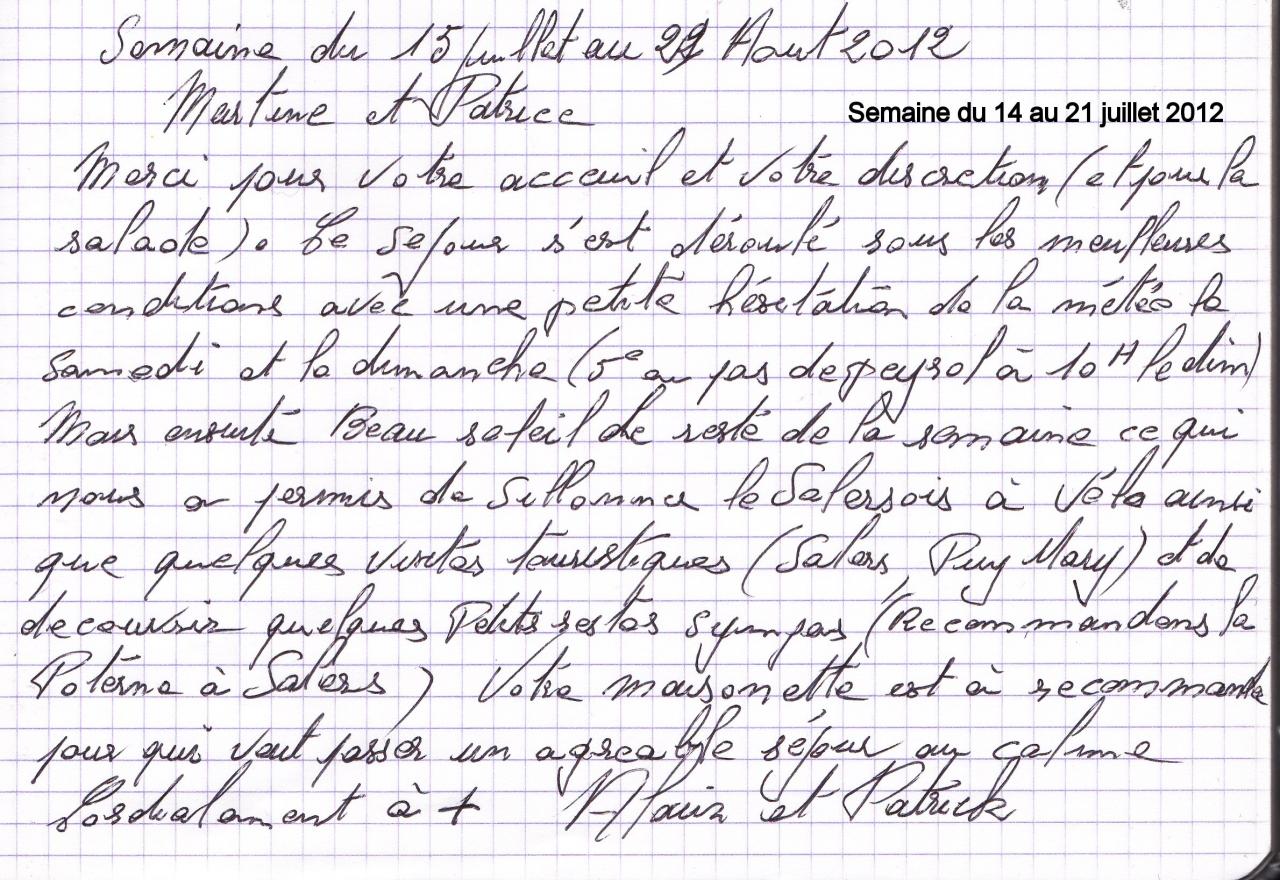 Semaine du 15 juillet au 22 Aout 2012
Martine et Patrice
Semaine du 14 au 21 juillet 2012
Merci pour votre acceuil et votre discretion (et pour la
salade). Ce sejour s'est déroulé sous les meilleures
conditions avec une petite hésitation de la météo le
samedi et le dimanche (5° au pas de peyrol à 10H le dim)
Mais ensuite Beau soleil le reste de la semaine ce qui
nous a permis de Sillonner le Salersois à Vélo ainsi
que quelques visites touristiques (Salers, Puy Mary) et de
decouvrir quelques Petits restos sympas (Recommandons la
Poterne à Salers) Votre maisonette est à recommander
pour qui veut passer un agreable séjour au calme
Cordialement à + Alain et Patrick